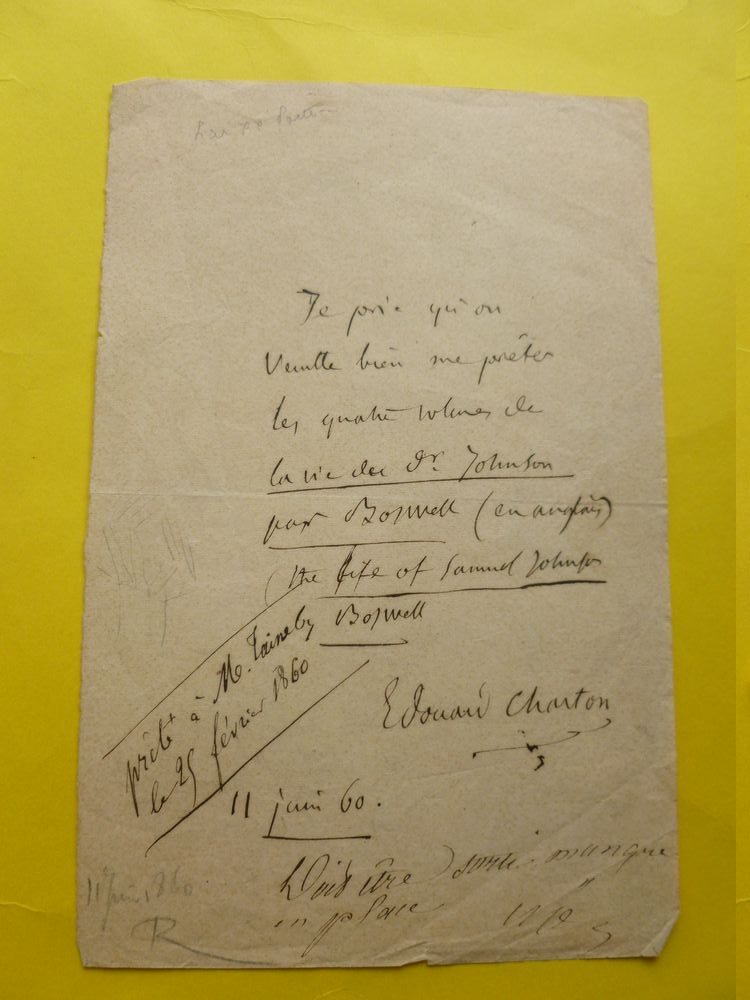 Je prie qu'on
veuille bien me prêter
les quatre volumes de
la vie du Dr. Johnson
par Boswell (en anglais)
(the life of Samuel Johnson
by Boswell
prêté à M. Taine
le 25 février 1860
Edouard Charton
11 juin 60.
Doit être sorti manque
en place
11 Juin 1860
R